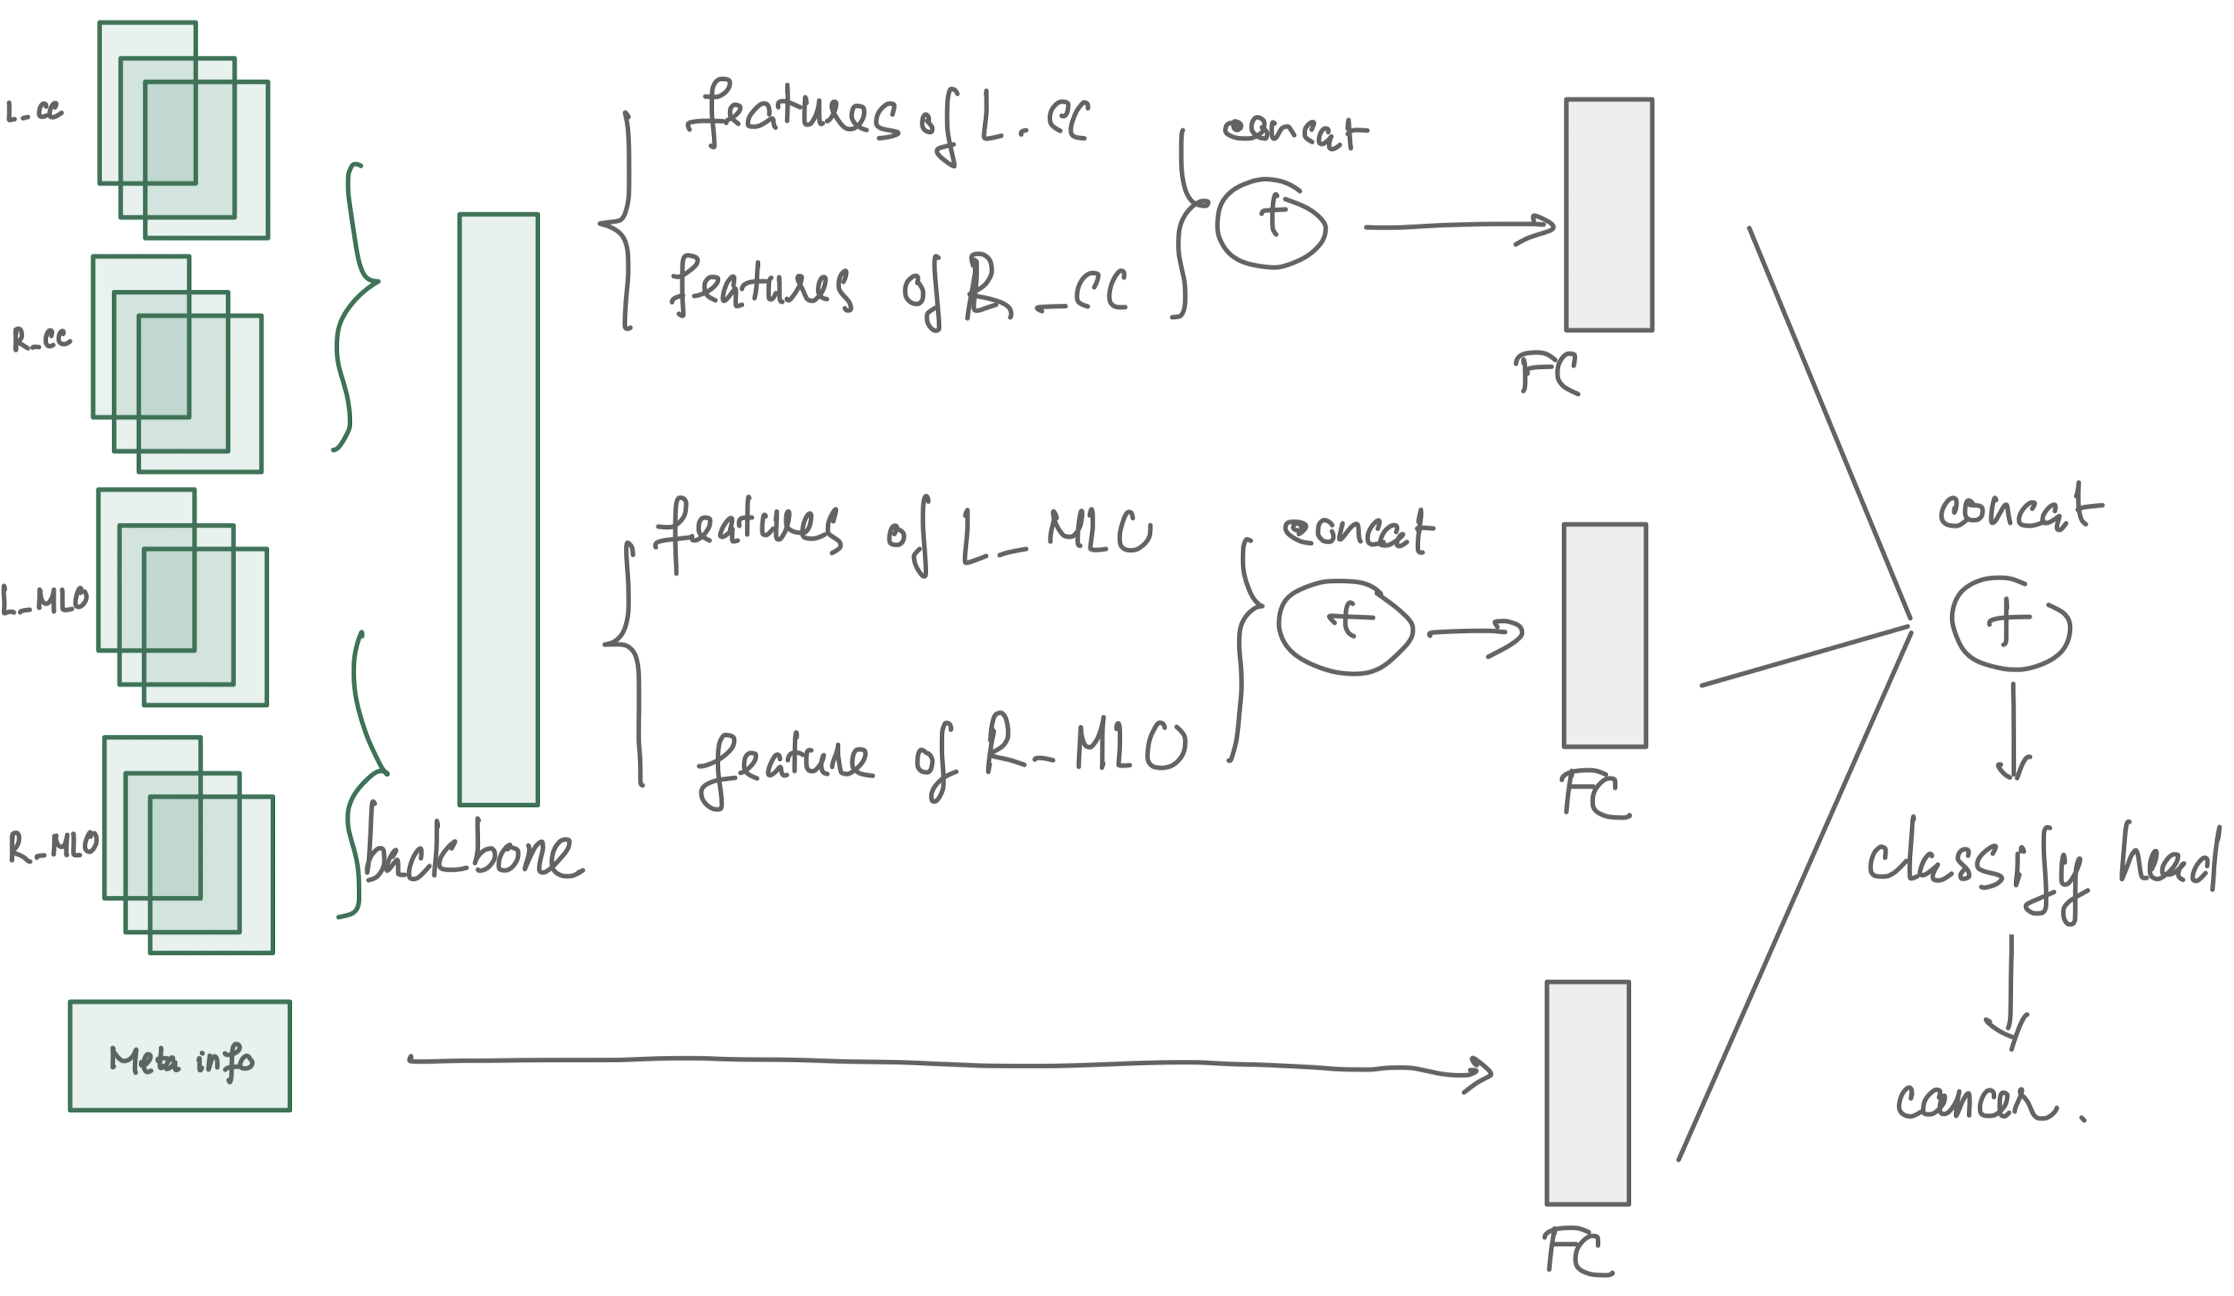 L_CC
R_CC
L_MLO
R_MLO
Meta info
backbone
features of L.CC
features of R_CC
concat
+
FC
features of L_MLO
feature of R_MLO
concat
+
FC
FC
concat
+
classify head
cancer.